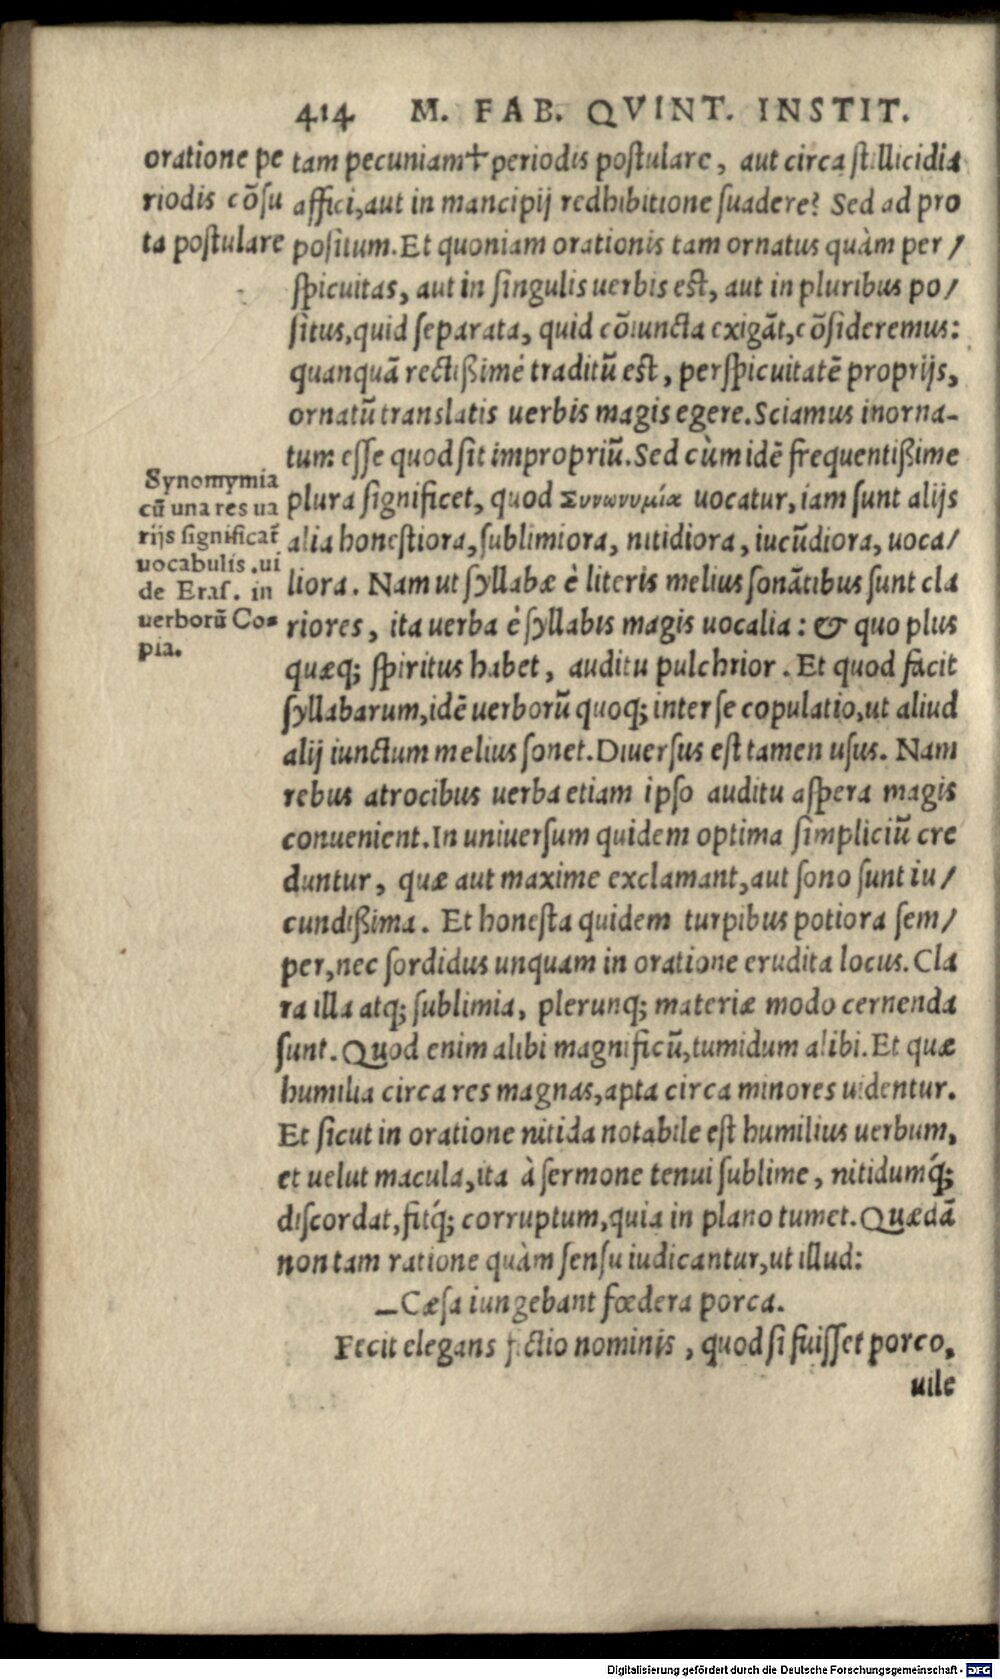 414 M. FAB. QVINT. INSTIT.
oratione pe
riodis cōsu
ta postulare
tam pecuniam+ periodis postulare, aut circa stillicidia
affici, aut in mancipij redhibitione suadere? Sed ad pro
positum. Et quoniam orationis tam ornatus quàm per/
spicuitas, aut in singulis uerbis est, aut in pluribus po/
situs, quid separata, quid cōiuncta exigāt, cōsideremus:
quanquā rectißimè traditū est, perspicuitatē proprijs,
ornatū translatis uerbis magis egere. Sciamus inorna-
tum esse quod sit impropriū. Sed cùm idē frequentißime
Synomymia
cū una res ua
rijs significat̄
uocabulis .ui
de Eras. in
uerborū Co-
pia.
plura significet, quod Συνωνυμία uocatur, iam sunt alijs
alia honestiora, sublimiora, nitidiora, iucūdiora, uoca/
liora. Nam ut syllabæ è literis melius sonātibus sunt cla
riores, ita uerba è syllabis magis uocalia: & quo plus
quæq; spiritus habet, auditu pulchrior. Et quod facit
syllabarum, idē uerborū quoq; inter se copulatio, ut aliud
alij iunctum melius sonet. Diuersus est tamen usus. Nam
rebus atrocibus uerba etiam ipso auditu aspera magis
conuenient. In uniuersum quidem optima simpliciū cre
duntur, quæ aut maxime exclamant, aut sono sunt iu/
cundißima. Et honesta quidem turpibus potiora sem/
per, nec sordidus unquam in oratione erudita locus. Cla
ra illa atq; sublimia, plerunq; materiæ modo cernenda
sunt. Quod enim alibi magnificū, tumidum alibi. Et quæ
humilia circa res magnas, apta circa minores uidentur.
Et sicut in oratione nitida notabile est humilius uerbum,
et uelut macula, ita à sermone tenui sublime, nitidumq́;
discordat, fitq́; corruptum, quia in plano tumet. Quædā
non tam ratione quàm sensu iudicantur, ut illud:
—Cæsa iungebant fœdera porca.
Fecit elegans fictio nominis, quod si fuisset porco,
uile
Digitalisierung gefördert durch die Deutsche Forschungsgemeinschaft - DFG